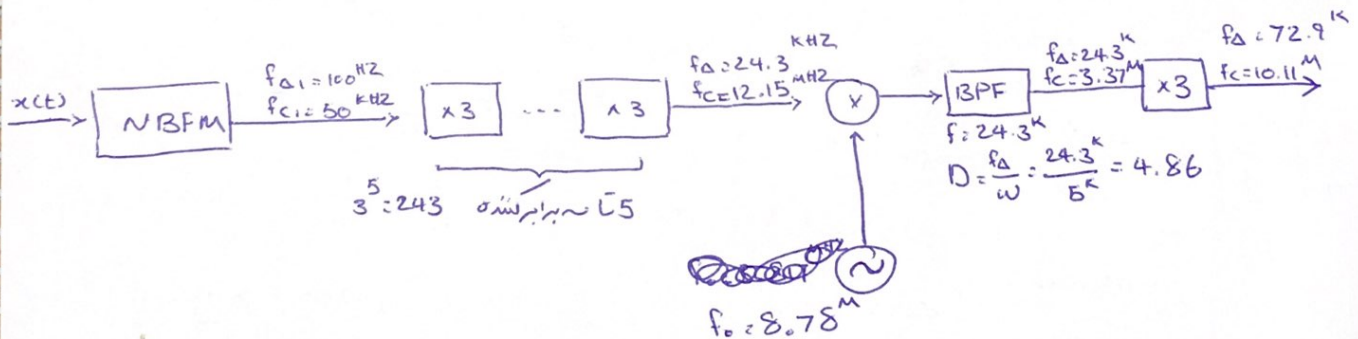 x(t)
NBFM
fΔ1 = 100 HZ
fc1 = 50 KHZ
×3 ... ×3
3^5 = 243 5 تا سه برابر کننده
fΔ = 24.3 KHZ
fc = 12.15 MHZ
×
~
f₀ = 8.78 M
BPF
f = 24.3 K
D = fΔ/W = 24.3 K/5 K = 4.86
fΔ = 24.3 K
fc = 3.37 M
×3
fΔ = 72.9 K
fc = 10.11 M